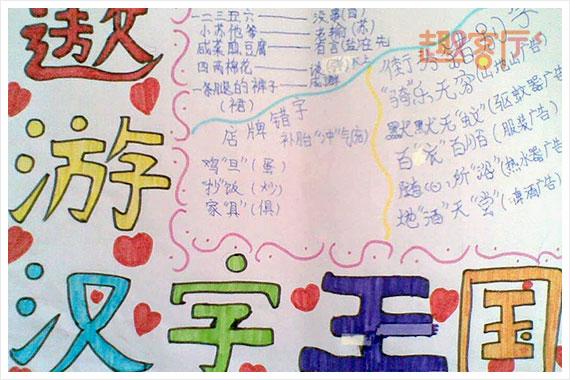 遨
游
汉
字
王
国
一二三五六——没事(四)
小苏他爷——老输(苏)
咸菜煎豆腐——有言(盐)在先
四两棉花——谈
一条腿的裤子
(裙)
店牌错字
补胎"冲"气
鸡"旦"(蛋)
抄"饭"(炒)
家"具"(俱)
街
"骑"乐无穷(山地山广告)
默默无"蚊"(驱蚊器广告)
百"衣"百
(服装广告)
随心所"浴"(热水器广告)
地"酒"天"堂"
酒广告)
趣客厅